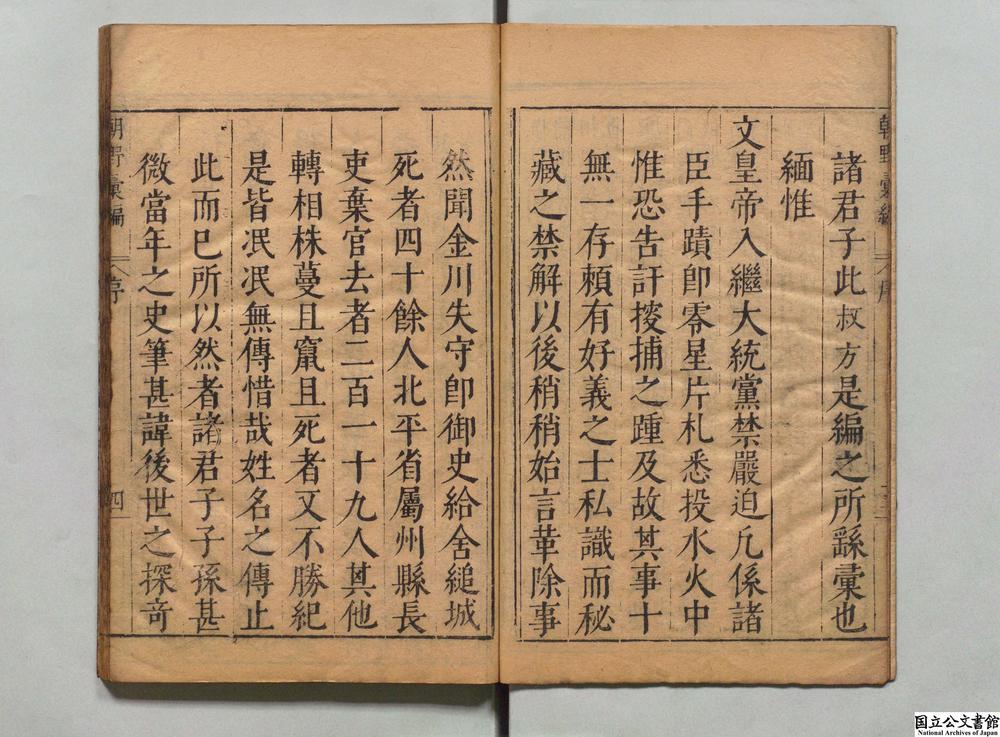 諸君子此叔方是編之所繇彙也
緬惟
文皇帝入繼大統黨禁嚴迫凢係諸
臣手蹟卽零星片札悉投水火中
惟恐告訐搜捕之踵及故其事十
無一存頼有好義之士私識而秘
藏之禁解以後稍稍始言革除事
然聞金川失守卽御史給舍縋城
死者四十餘人北平省屬州縣長
吏棄官去者二百一十九人其他
轉相株蔓且竄且死者又不勝紀
是皆泯泯無傳惜哉姓名之傳止
此而已所以然者諸君子子孫甚
微當年之史筆甚諱後世之探奇
朝野彙編
序
四
国立公文書館
National Archives of Japan